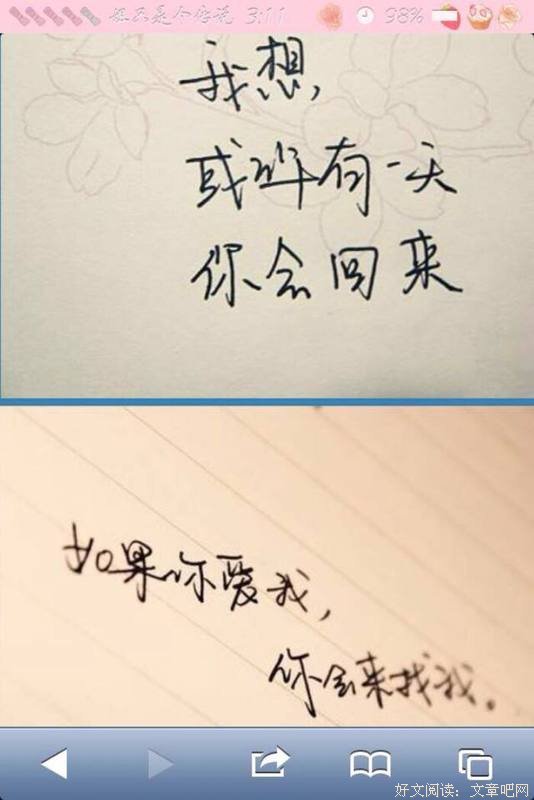 3:11
98%
我想,
或许有一天
你会回来
如果你爱我,
你会来找我。
好文阅读：文章吧网